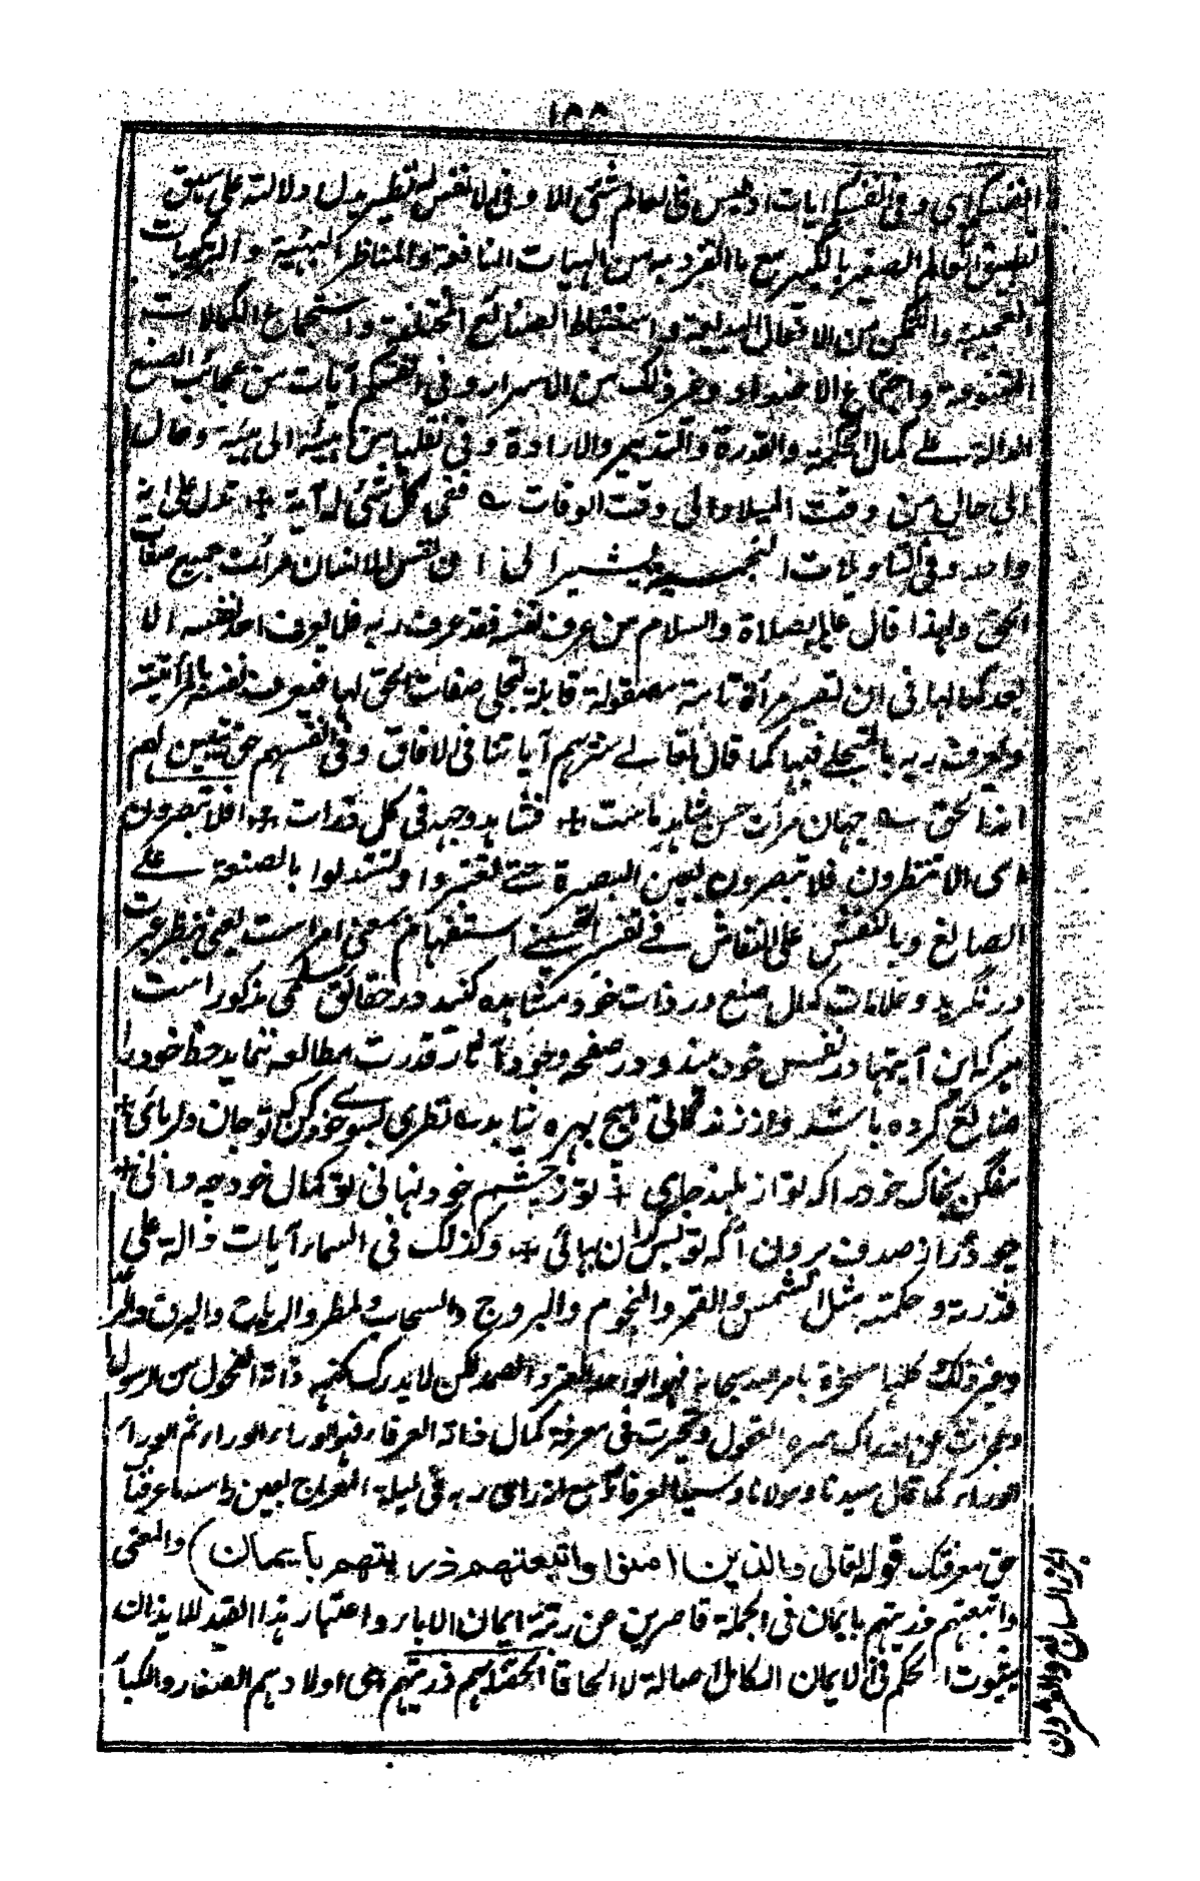 ١٥٥
انفسكم اى وفى انفسكم ايات اذ ليس فى العالم شئ الا وفى الانفس له نظير يدل دلالته على سبق
تطبيق العالم الصغير بالكبير مع ما انفرد به من الهيئات النافعة والمناظر البهية والتركيبات
العجيبة والتمكن من الافعال البديعة واستنباط الصنائع المختلفة واستجماع الكمالات
المتنوعة واجتماع الاضداد وغير ذلك من الاسرار وفى انفسكم آيات من عجائب الصنع
الدالة على كمال الحكمة والقدرة والتدبير والارادة وفى تقلبها من هيئة الى هيئة وحال
الى حال من وقت الميلاد الى وقت الوفات ففى كل شئ له آية + تدل على انه
واحد وفى التاويلات النجميه يشير الى ان نفس الانسان مرأت جميع صفات
الحق ولهذا قال عليه صلاة والسلام من عرف نفسه فقد عرف ربه فلا يعرف احد نفسه الا
بعد كمالها فى ان تصير مرأة تامة مصقولة قابلة لتجلى صفات الحق لها فيعرف نفسه بالمرآتيته
ويعرف ربه بالتجلى فيها كما قال تعالى سنريهم آياتنا فى الافاق وفى انفسهم حتى يتبين لهم
انه الحق جهان مرأت حسن شاهد ماست + فشاهد وجهه فى كل ذرات + افلا تبصرون
اى الا تنظرون فلا تبصرون بعين البصيرة حتى تعتبروا وتستدلوا بالصنعة على
الصانع وبالنقش على النقاش فى تفسير الحسينى استفهام بمعنى امر است يعنى بنظر عبرت
در نگريد وعلامات كمال صنع در ذات خود مشاهده كنيد ودر حقائق سلمى مذكور است
هركه اين آيتها در نفس خود نبيند ودر صفحه وجود آثار قدرت مطالعه ننمايد حظ خود را
ضائع كرده باشد واز زندگانى هيچ بهره نيابد نظرى بسوى خود كن كه تو جان دلربائى +
مفكن بخاك خود را كه تو از بلند جايى + تو ز چشم خود نهانى تو كمال خود چه دانى +
چو در از صدف برون آ كه تو بس گران بهائى + وكذلك فى السماء آيات دالة على
قدرته وحكمته مثل الشمس والقمر والنجوم والبروج والسحاب والمطر والرياح والبرق والرعد
وغير ذلك كلها مسخرة بامره سبحانه فهو الواحد الفرد الصمد لكن لا يدرك كنه ذاته الفحول من الرسول
وعجزت عن ادراك العقول وتحيرت فى معرفة كمال ذاته العرفاء فهو الوراء الوراء ثم الوراء
الوراء كما قال سيدنا ومولانا وسيد العرفاء مع انه راى ربه فى ليلة المعراج بعين راسه ما عرفنا
حق معرفتك قوله تعالى والذين امنوا واتبعتهم ذريتهم بايمان) والمعنى
واتبعتهم ذريتهم بايمان فى الجملة قاصرين عن رتبة ايمان الاباء واعتبار هذا القيد للايذان
بثبوت الحكم فى الايمان الكامل اصالة لا الحاقا الحقنا بهم ذريتهم اى اولادهم الصغار والكبار
الجزء السابع والعشرون